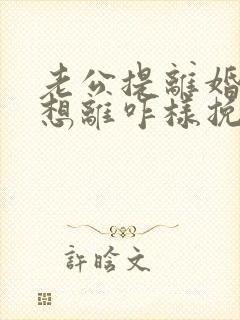 老公提離婚
想離咋樣挽
許晗文